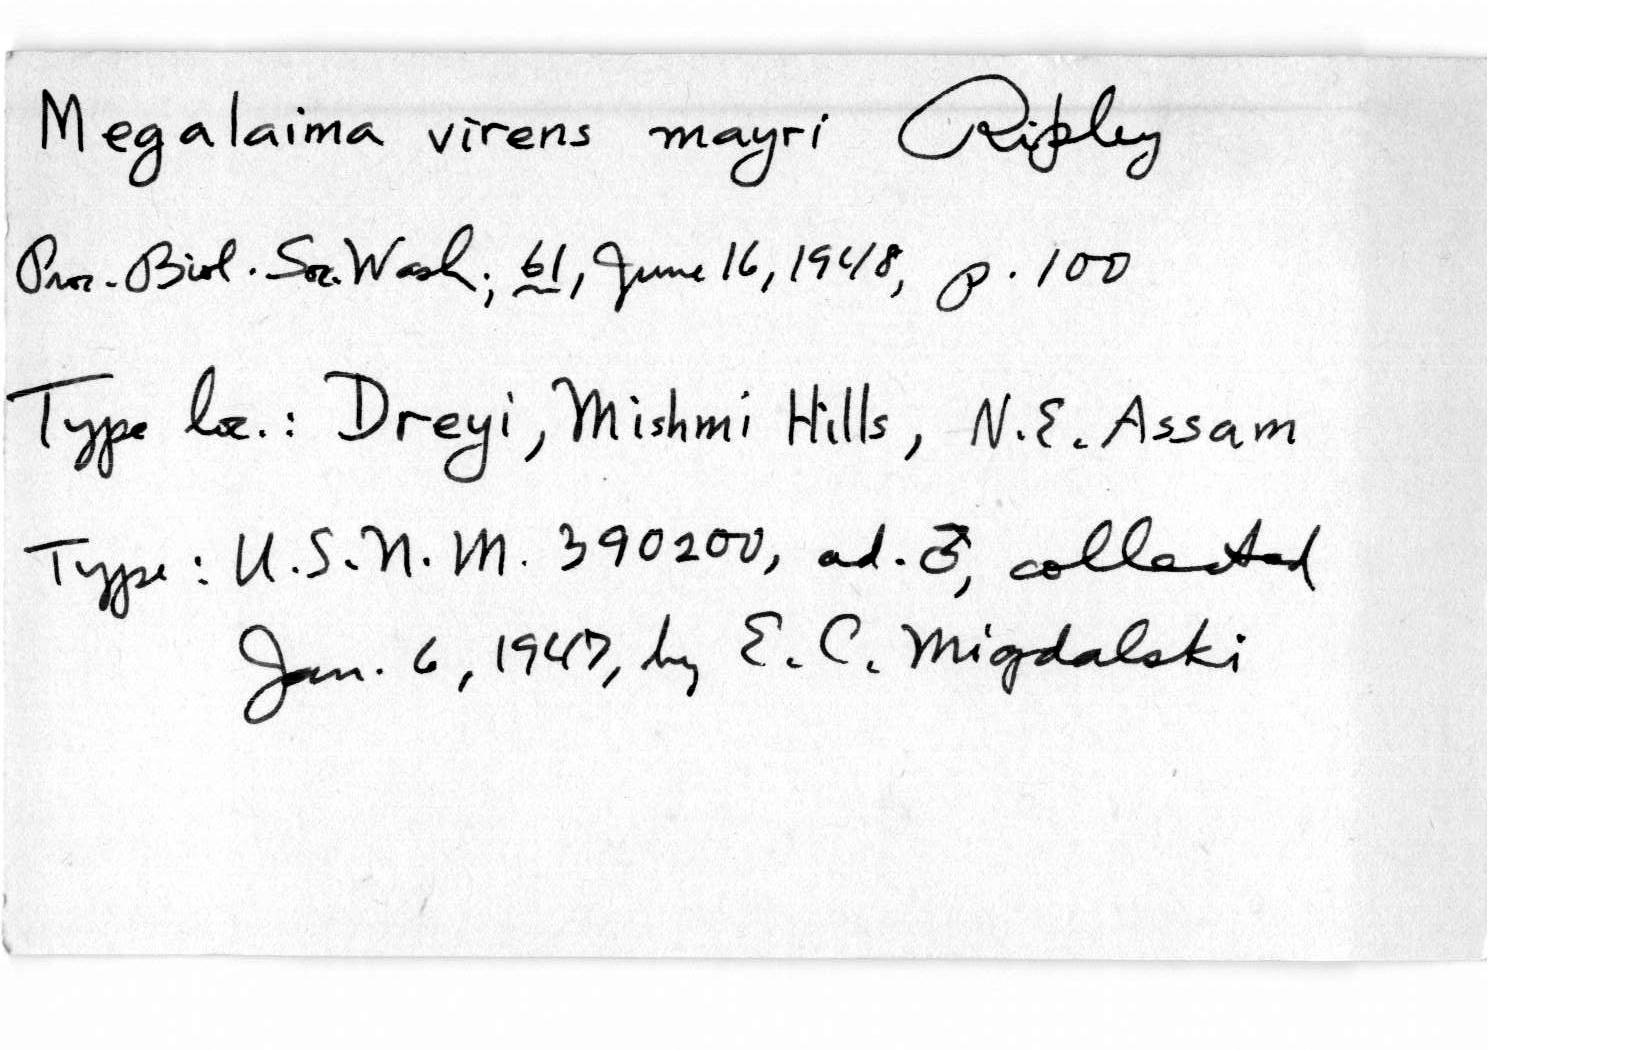 Megalaima virens mayri Ripley
Proc. Biol. Soc. Wash., 61, June 16, 1948, p. 100
Type loc.: Dreyi, Mishmi Hills, N.E. Assam
Type: U.S.N.M. 390200, ad. ♂, collected
Jan. 6, 1947, by E. C. Migdalski